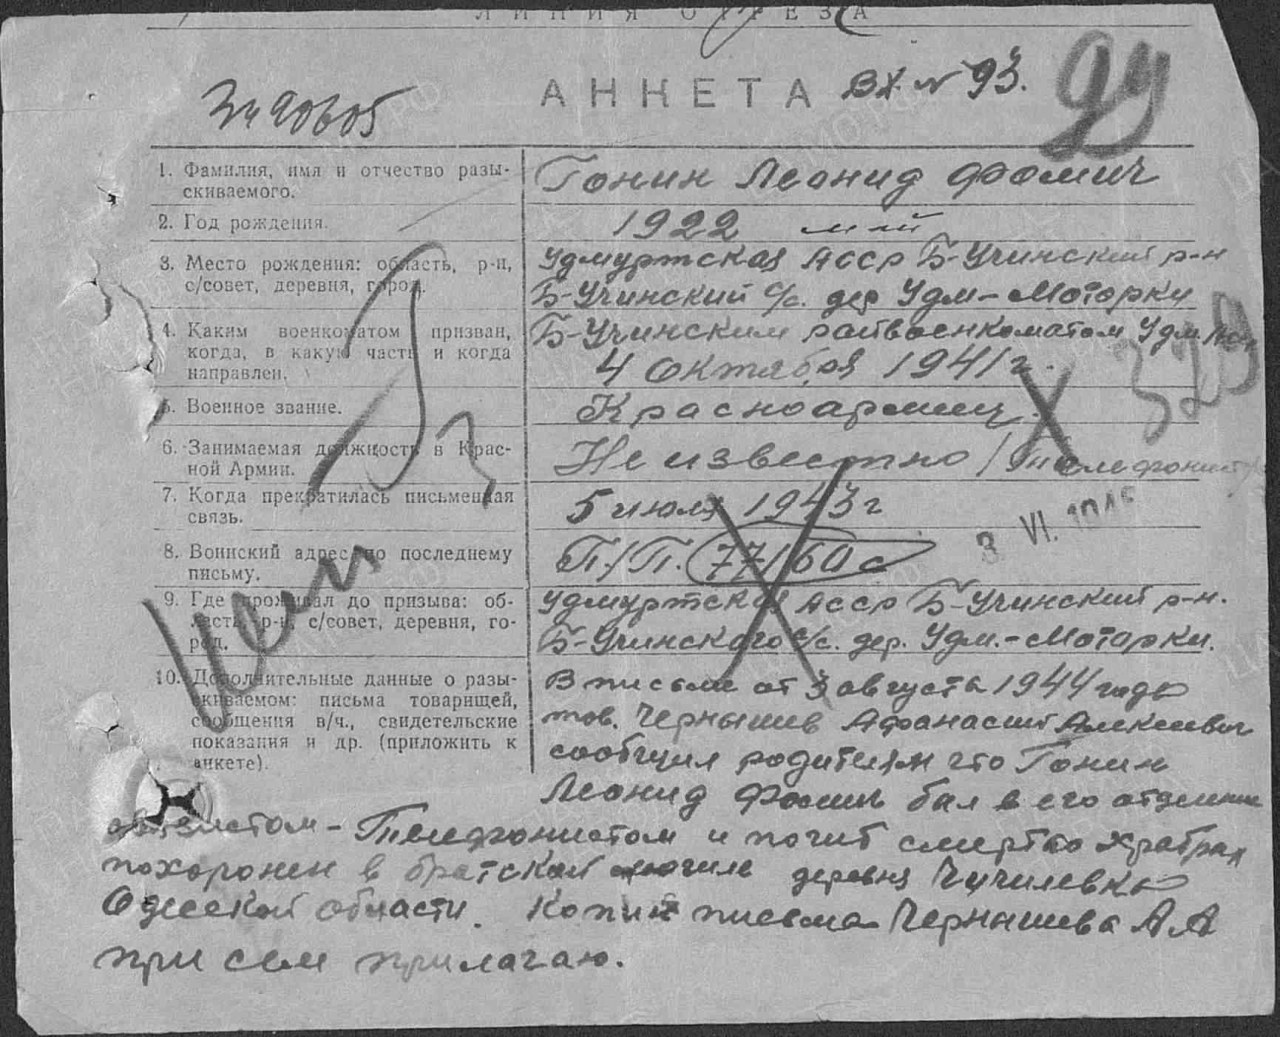 ЛИНИЯ ОТРЕЗА
АНКЕТА Вх. № 93.
1. Фамилия, имя и отчество разы-
скиваемого.
Гонин Леонид Фомич
2. Год рождения.
1922 май
3. Место рождения: область, р-н,
с/совет, деревня, город.
Удмуртская АССР Б-Учинский р-н
Б-Учинский с/с. дер Удм-Моторки
4. Каким военкоматом призван,
когда, в какую часть и когда
направлен.
Б-Учинским райвоенкоматом Удм.
4 октября 1941 г.
5. Военное звание.
Красноармеец
6. Занимаемая должность в Крас-
ной Армии.
Не известно / телефонист
7. Когда прекратилась письменная
связь.
5 июля 1943 г
3 VI. 1946
8. Воинский адрес по последнему
письму.
П/П. 77160 с
9. Где проживал до призыва: об-
ласть, р-н, с/совет, деревня, го-
род.
Удмуртская АССР Б-Учинский р-н.
Б-Учинского с/с. дер. Удм.-Моторки.
10. Дополнительные данные о разы-
скиваемом: письма товарищей,
сообщения в/ч., свидетельские
показания и др. (приложить к
анкете).
В письме от 3 августа 1944 года
тов. Чернышев Афанасий Алексеевич
сообщил родителям что Гонин
Леонид Фомич был в его отделении
связистом - Телефонистом и погиб смертью храбрых
похоронен в братской могиле деревня Чучилевка
Одесской области. Копия письма Чернышева А А
при сем прилагаю.